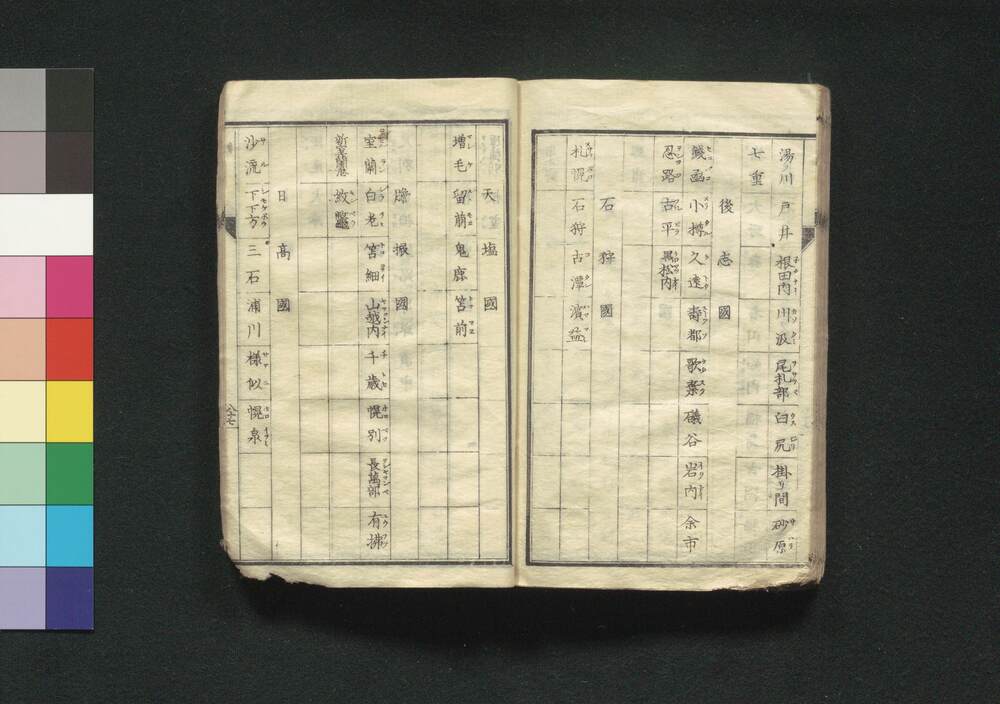 湯ノ川 戸井 根田内 川汲 尾札部 臼尻 掛リ間 砂原
七重
後志國
鰪函 小樽 久遠 壽都 歌棄 礒谷 岩内 余市
忍路 古平 黒松内
石狩國
札幌 石狩 古潭 濱益
天塩國
増毛 留萠 鬼鹿 苫前
膽振國
室蘭 白老 苫細 山越内 千歳 幌別 長萬部 有拂
新室蘭港 紋鼈
日高國
沙流 下下方 三石 浦川 様似 幌泉
六十七